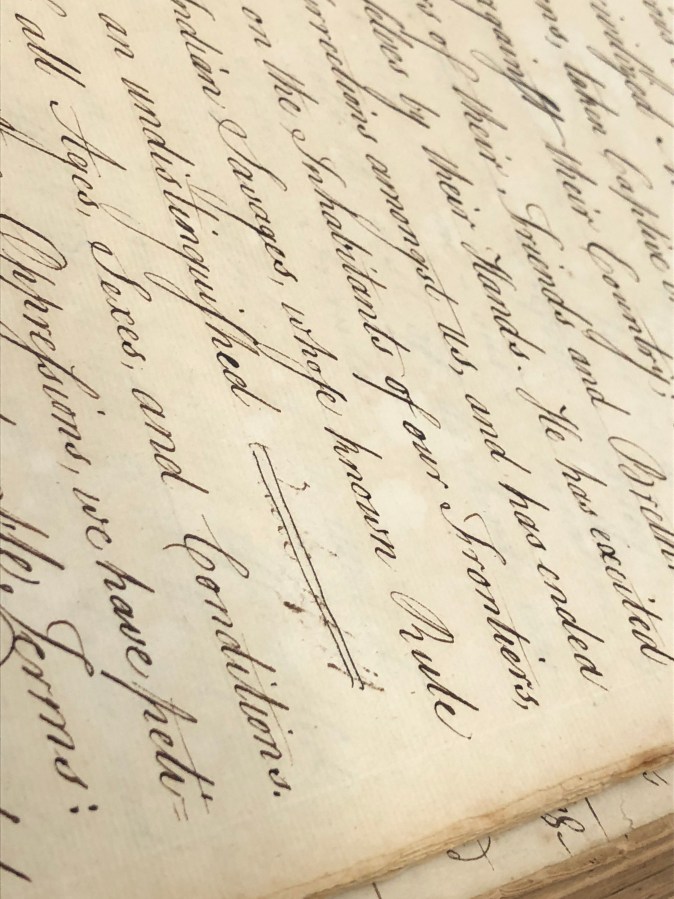 taken Captive
against their Country;
of their Friends and Breth
elves by their Hands. He has excited
rrections amongst us, and has ended
on the Inhabitants of our Frontiers,
Indian Savages, whose known Rule
an undistinguished
all Ages, Sexes, and Conditions.
Oppressions, we have peti=
ble Terms: